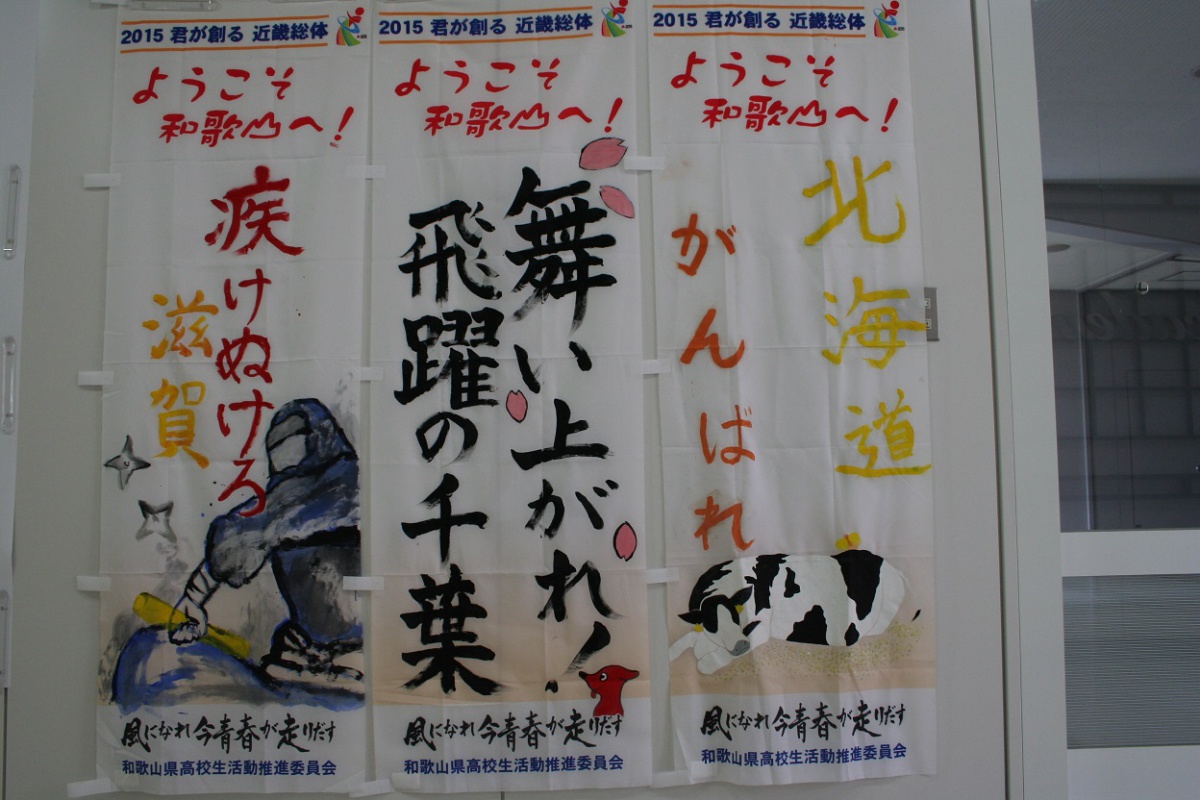 2015 君が創る 近畿総体
ようこそ
和歌山へ!
疾けぬけろ
滋賀
風になれ今青春が走りだす
和歌山県高校生活動推進委員会
2015 君が創る 近畿総体
ようこそ
和歌山へ!
舞い上がれ!
飛躍の千葉
風になれ今青春が走りだす
和歌山県高校生活動推進委員会
2015 君が創る 近畿総体
ようこそ
和歌山へ!
北海道
がんばれ
風になれ今青春が走りだす
和歌山県高校生活動推進委員会